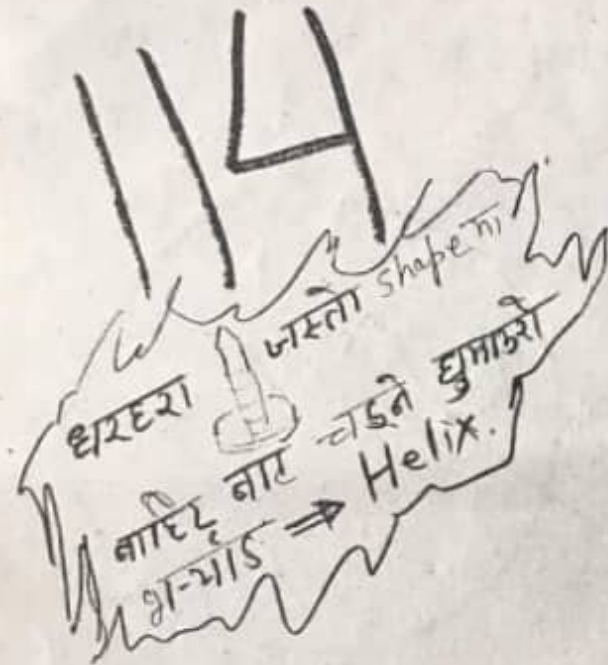 114
धरहरा जस्तो shape मा
बाहिर बाट चढ्ने घुमाउरो
भर्‍याङ ⇒ Helix.